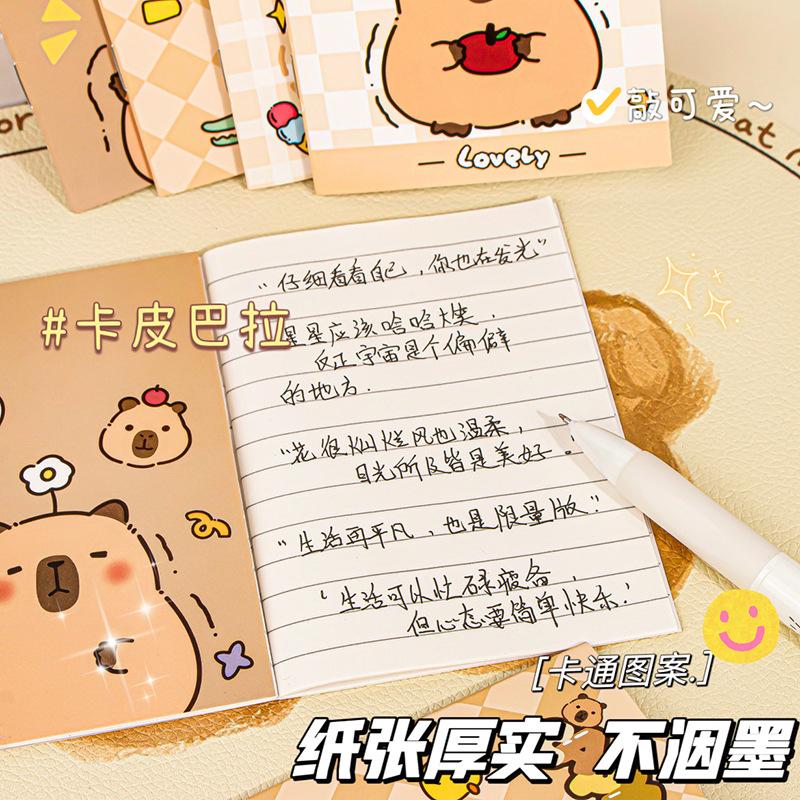 敲可爱~
Lovely
#卡皮巴拉
"仔细看看自己，你也在发光"
星星应该哈哈大笑，
反正宇宙是个偏僻
的地方.
"花很灿烂风也温柔，
目光所及皆是美好！
"生活再平凡，也是限量版."
生活可以忙碌疲惫，
但心态要简单快乐！
[卡通图案.]
纸张厚实 不洇墨